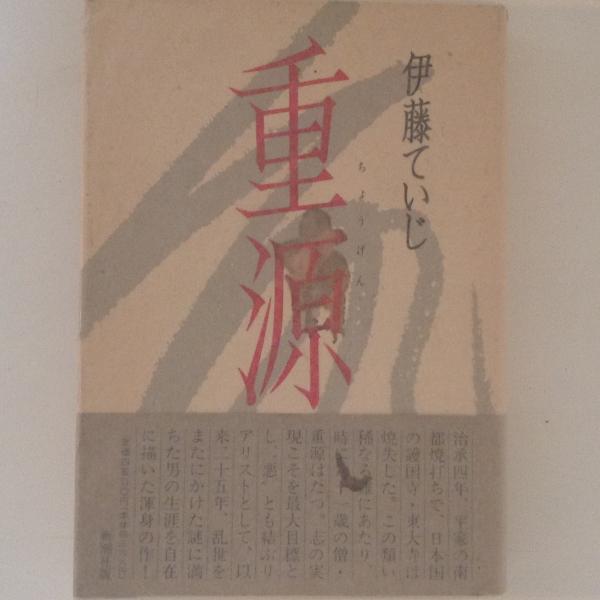 伊藤ていじ
重源
ちょうげん
治承四年、平家の南
都焼打ちで、日本国
の護国寺・東大寺は
焼失した。この類い
稀なる難にあたり、
時 十一歳の僧・
重源はたつ。志の実
現こそを最大目標と
し、“悪”とも結ぶリ
アリストとして、以
来二十五年、乱世を
またにかけた謎に満
ちた男の生涯を自在
に描いた渾身の作！
新潮社版